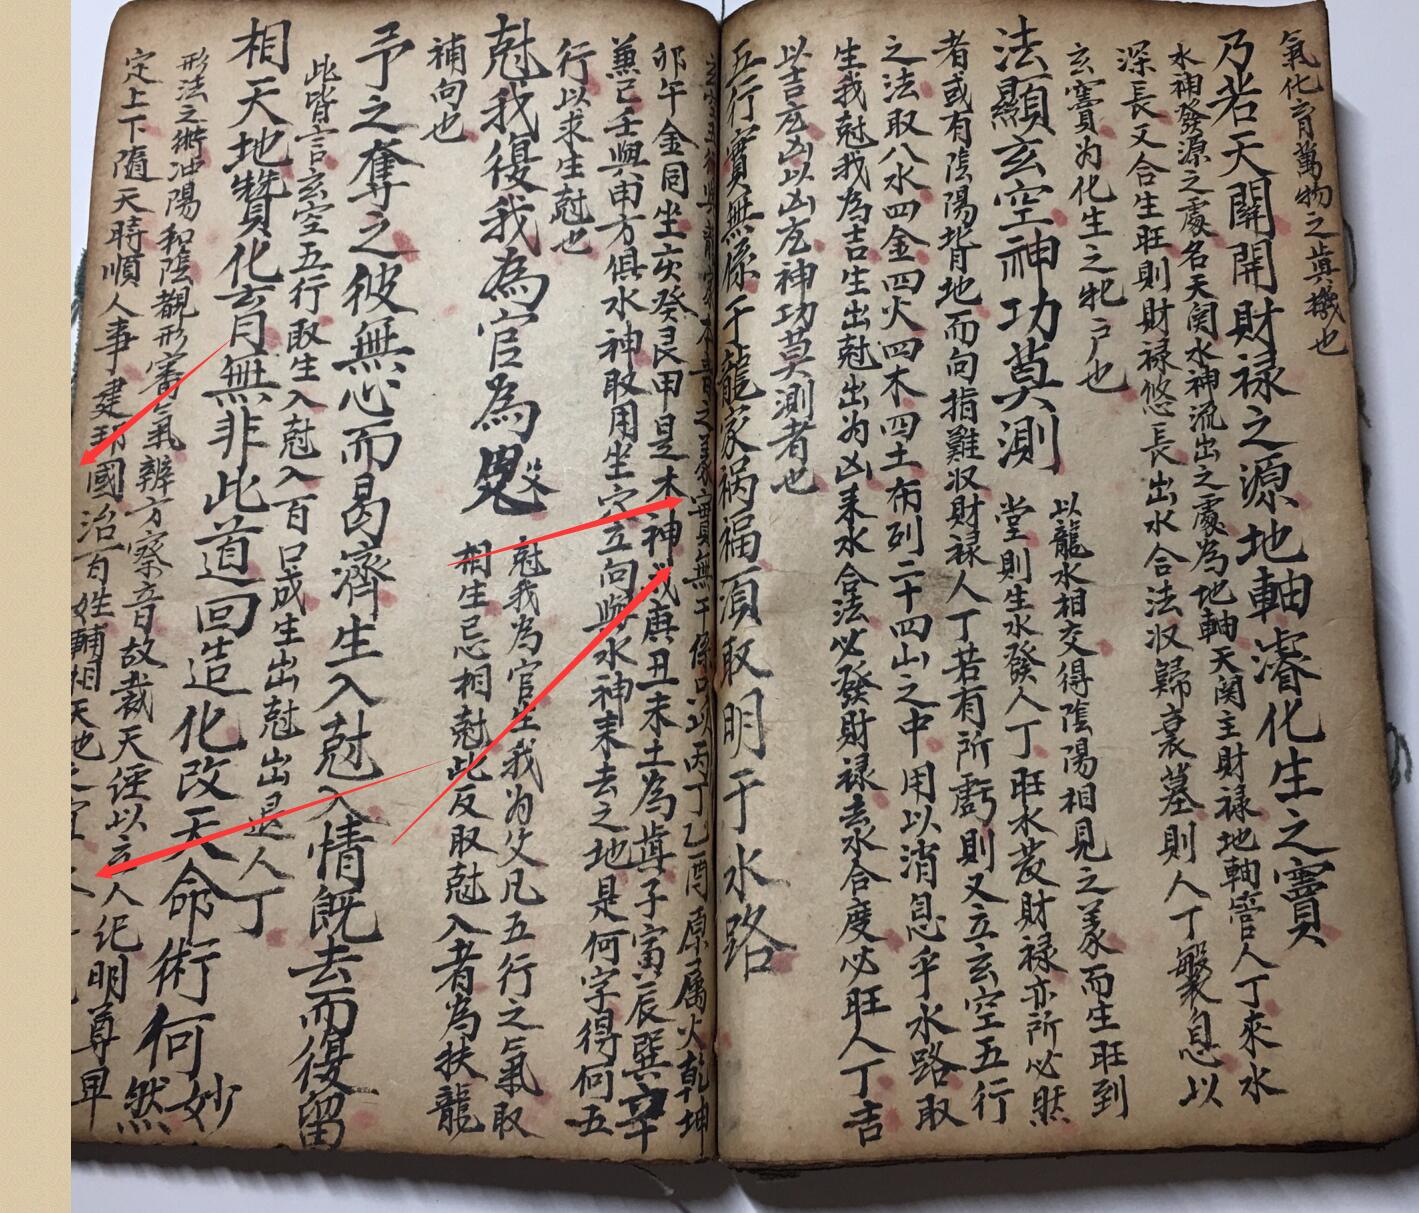 氣化育萬物之眞機也
乃若天關開財禄之源地軸濬化生之竇
水神發源之處名天関水神流出之處為地軸天関主財禄地軸管人丁來水
深長又合生旺則財禄悠長出水合法収歸衰墓則人丁繁息以
玄竇为化生之牝户也
法顯玄空神功莫測
以龍水相交得隂陽相見之義而生旺到
堂則生水發人丁旺水发財禄亦所必然
者或有隂陽背地而向指難収財禄人丁若有所虧則又立玄空五行
之法取八水四金四火四木四土布列二十四山之中用以消息乎水路取
生我尅我為吉生出尅出为凶来水合法必發財禄去水合度必旺人丁吉
以吉应凶以凶应神功莫測者也
五行實無係于龍家祸福須取明于水路
本音之義實無干係只以丙丁乙酉原属火乾坤
卯午金同坐亥癸艮甲是木神戌庚丑未土為眞子寅辰巽辛
兼己壬與申方俱水神取用坐穴立向與水神来去之地是何字得何五
行以求生尅也
尅我復我為官為鬼父
尅我为官生我为父凡五行之氣取
相生忌相尅此反取尅入者為扶龍
補向也
予之奪之彼無心而曷濟生入尅入情既去而復留
此皆言玄空五行取生入尅入百口成生出尅出退人丁
相天地贊化育無非此道回造化改天命術何妙
然
形法之術冲陽和隂觀形審氣辨方察音故裁天
定上下隨天時順人事建邦國治百姓輔相天地之宜
經以立人纪明尊卑